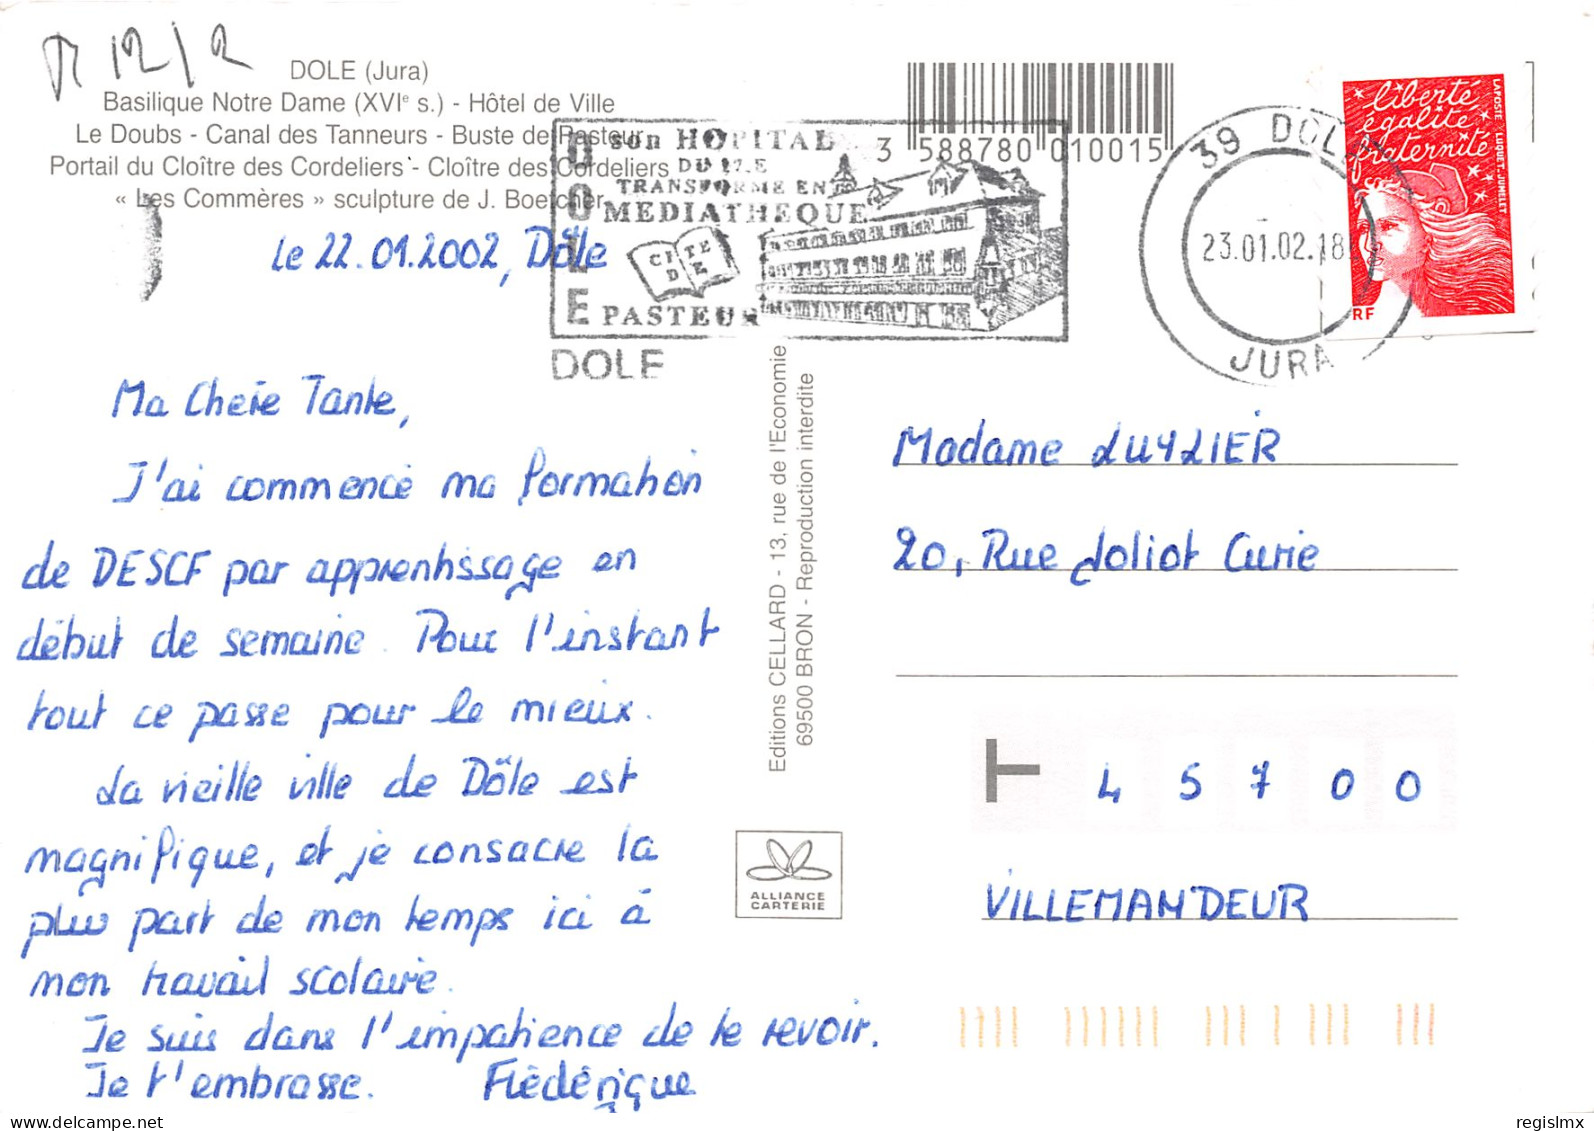 R 12/2
DOLE (Jura)
Basilique Notre Dame (XVIe s.) - Hôtel de Ville
Le Doubs - Canal des Tanneurs - Buste de Pasteur
Portail du Cloître des Cordeliers - Cloître des Cordeliers
« Les Commères » sculpture de J. Boetcher
3 588780 010015
DOLE
son HOPITAL
DU 17.E
TRANSFORME EN
MEDIATHEQUE
CITE
DE
PASTEUR
DOLE
39 DOLE
23.01.02.18
JURA
liberté
égalité
fraternité
LAPOSTE LUQUET.JUMELET
RF
Le 22.01.2002, Dôle
Ma Chère Tante,
J'ai commencé ma formation
de DESCF par apprentissage en
début de semaine. Pour l'instant
tout ce passe pour le mieux.
La vieille ville de Dôle est
magnifique, et je consacre la
plus part de mon temps ici à
mon travail scolaire.
Je suis dans l'impatience de te revoir.
Je t'embrasse. Frédérique
Editions CELLARD - 13, rue de l'Economie
69500 BRON - Reproduction interdite
ALLIANCE
CARTERIE
Madame LUYLIER
20, Rue Joliot Curie
45700
VILLEMANDEUR
www.delcampe.net
regislmx